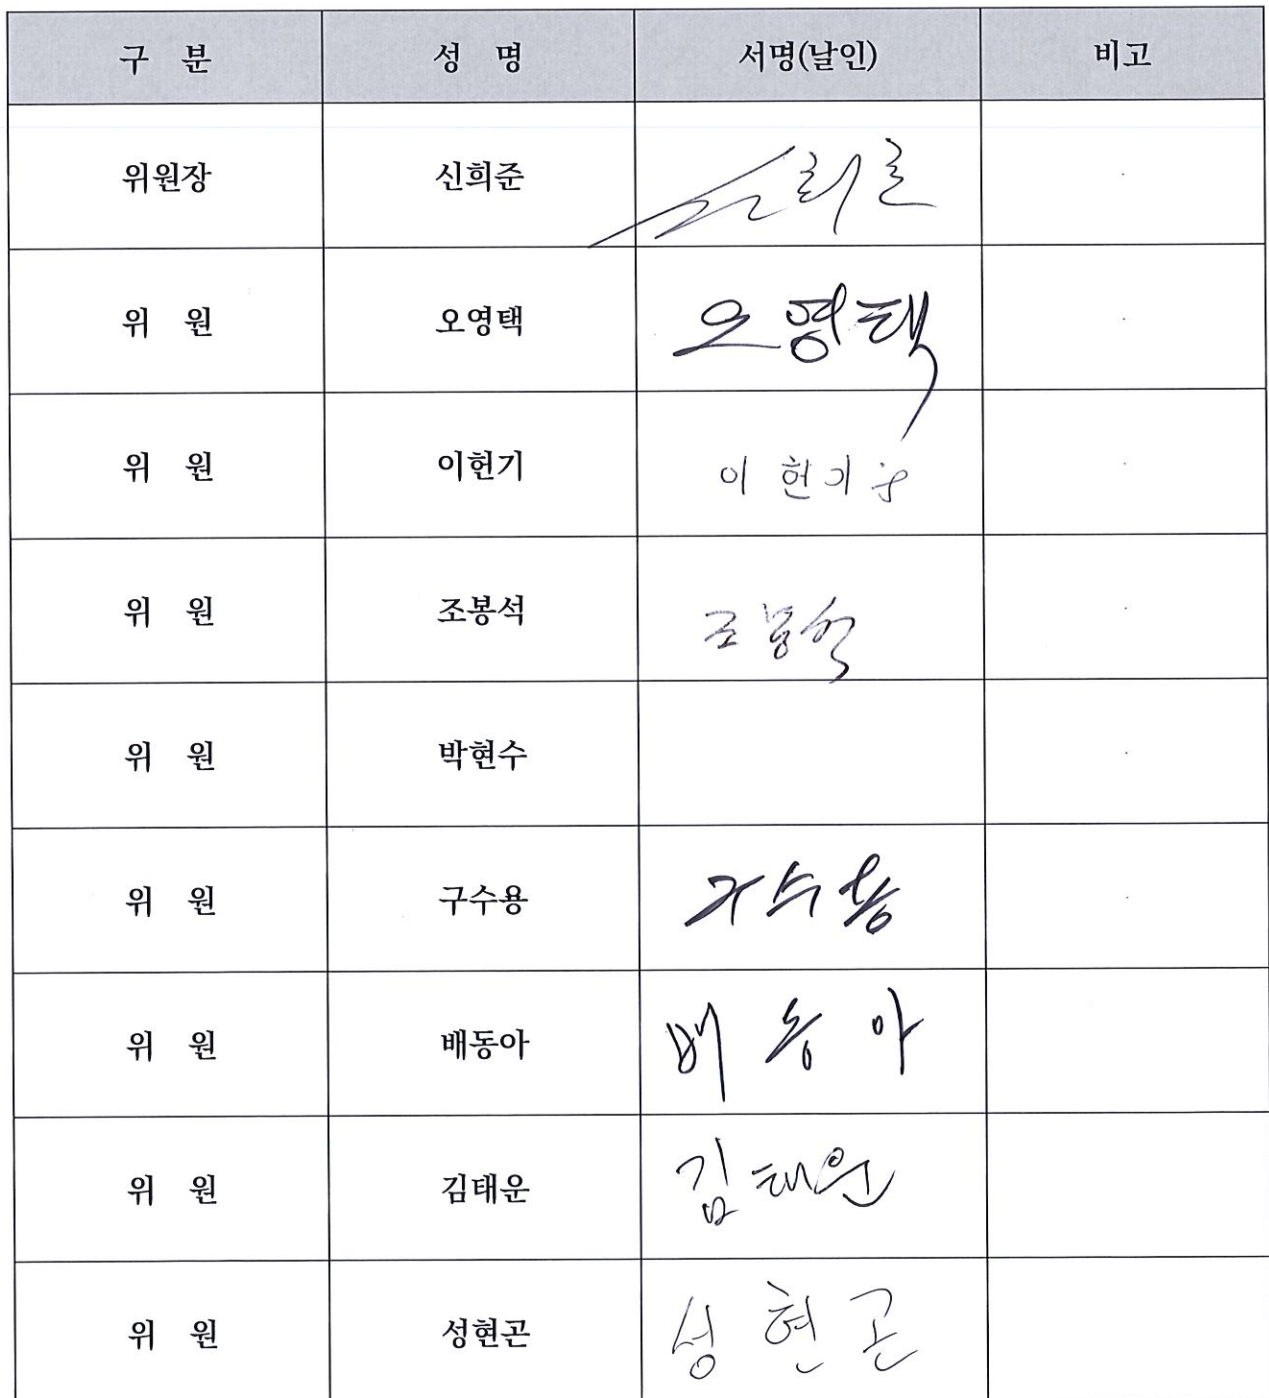 구 분 성 명 서명(날인) 비고
위원장 신희준
위 원 오영택 오영택
위 원 이헌기 이헌기
위 원 조봉석 조봉석
위 원 박현수
위 원 구수용 구수용
위 원 배동아 배동아
위 원 김태운 김태운
위 원 성현곤 성현곤